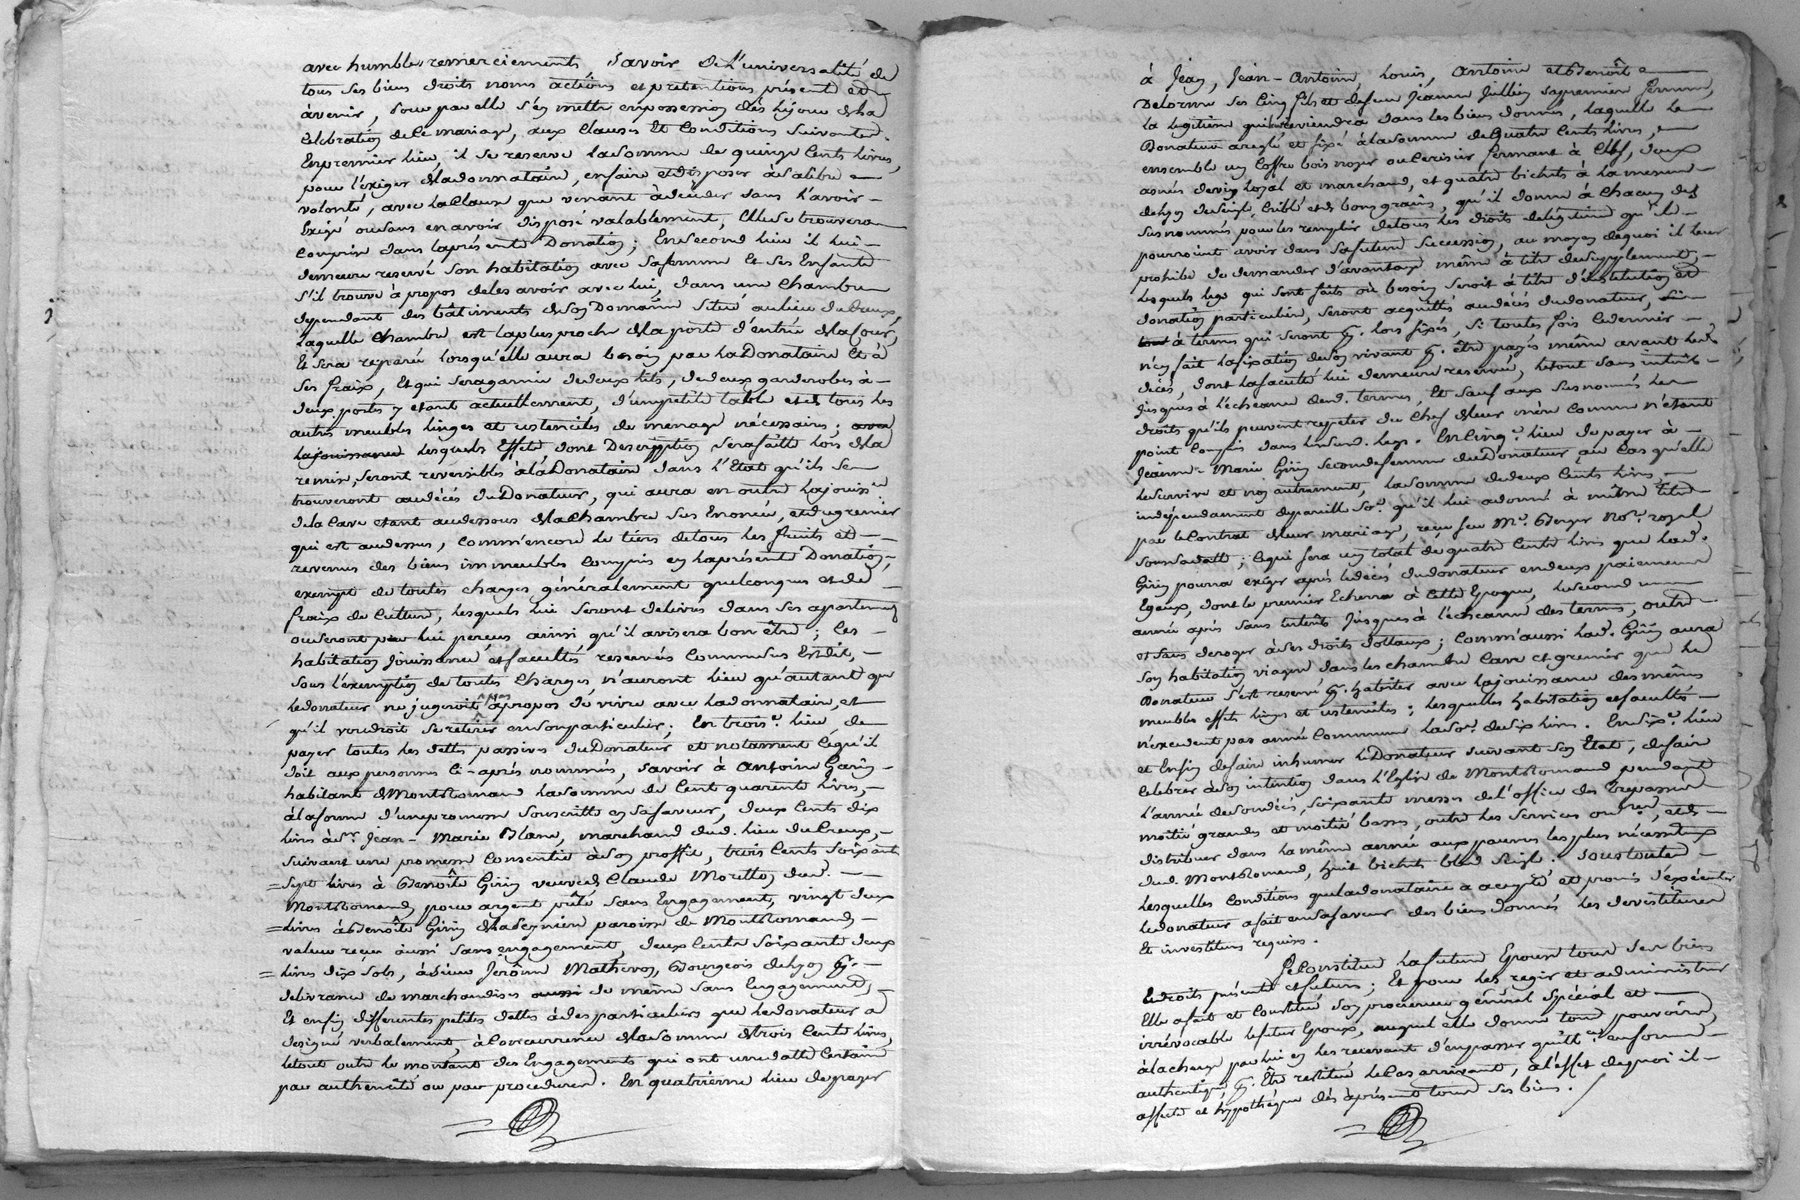 avec humbles remerciements savoir de l'universalité de
tous ses biens droits noms actions et prétentions présents et
à venir, pour par elle s'en mettre en possession dès le jour de la
célébration de ce mariage, aux clauses et conditions suivantes.
En premier lieu, il se reserve la somme de quinze cents livres,
pour l'exiger de la donnataire, en faire et disposer à sa libre
volonté, avec la clause que venant à déceder sans l'avoir
exigé ou sans en avoir disposé valablement, elle se trouvera
comprise dans la présente Donation; En second lieu il lui
demeure reservé son habitation avec sa femme et ses Enfants
s'il trouve à propos de les avoir avec lui, dans une chambre
dependant des bâtiments de son Domaine situé au lieu du Creux,
laquelle chambre est la plus proche de la porte d'entrée de la Cour,
Et sera reparée lorsqu'elle aura besoin par la Donataire et à
ses fraix, et qui sera garnie de deux lits, de deux garderobes à
deux portes y etant actuellement, d'une petite table et de tous les
autres meubles linges et ustenciles de menage nécessaires; avec
la jouissance lesquels Effets dont Description sera faitte lors de la
remise, seront reversibles à la Donataire dans l'Etat qu'ils se
trouveront au décés du Donateur, qui aura en outre la jouiss.ce
de la Cave etant au dessous de la Chambre sus Enoncée, et du grenier
qui est au dessus, comm'encore le tiers de tous les fruits et
revenus des biens immeubles compris en la présente Donation,
exempt de toutes charges généralement quelconques et de
fraix de Culture, lesquels lui seront delivrés dans ses apartements
ou seront par lui perçus ainsi qu'il avisera bon être; les
habitation jouissance et facultés reservées comme sus Est dit,
sous l'exemption de toutes charges, n'auront lieu qu'autant que
le donateur ne jugeroit pas àpropos de vivre avec la donnataire, et
qu'il voudroit se retirer en son particulier; En trois.e lieu de
payer toutes les dettes passives du Donateur et notament ce qu'il
doit aux personnes ci-après nommées, savoir à Antoine Garin
habitant de Montromand la somme de Cent quarente livres,
à la forme d'une promesse souscritte en sa faveur, deux cents dix
livres à S.r Jean-Marie Blanc, marchand dud. lieu du Creux,
suivant une promesse consentie à son proffit, trois cents soixante
sept livres à Benoîte Girin veuve de Claude Morillon dud.
Montromand, pour argent prêté sans Engagement, vingt deux
livres à Benoîte Girin paroisse de Montromand,
valeur reçue aussi sans engagement, deux cents soixante deux
livres dix sols, à Sieur Jerôme Mathevon, Bourgeois de Lyon p.r
delivrance de marchandises aussi de même sans Engagement,
Et enfin differentes petites dettes à des particuliers que le donateur a
designé verbalement, à concurrence de la somme de trois cents livres,
le tout outre le montant des Engagements qui ont une datte certaine
par authencité ou par procedures. En quatrieme lieu de payer
à Jean, Jean-Antoine, Louis, Antoine et Benoît
Delorme ses cinq fils et de feue Jeanne Jullien sa premiere femme,
la legitime qui leur reviendra dans les biens donnés, laquelle le
Donateur a reglé et fixé à la somme de quatre cents livres,
ensemble un coffre bois noyer ou cerisier fermant à clef, deux
asnées de vin loyal et marchand, et quatre bichets à la mesure
de Lyon de seigle, criblé et de bons grains, qu'il donne à chacun des
susnommés pour les remplir de tous les droits de legitime qu'ils
pourroient avoir dans sa future succession, au moyen de quoi il leur
prohibe de demander d'avantage même à titre de supplement;
lesquels legs qui sont faits où besoin seroit à titre d'institution et
donation particuliere, seront acquittés au décés du donateur,
à termes qui seront p.r lors fixés, si toutes fois ce dernier
n'en fait la fixation de son vivant p.r être payés même avant led.
décés, dont la faculté lui demeure reservée, le tout sans intérêts
jusques à l'écheance desd. termes, Et sauf aux susnommés les
droits qu'ils peuvent repeter du Chef de leur mere comme n'etant
point compris dans lesd. legs. En cinq.e lieu de payer à
Jeanne-Marie Girin seconde femme du Donateur au cas qu'elle
le survive et non autrement, la somme de deux cents livres,
indépendament de pareille so.e qu'il lui a donné à même titre
par le contrat de leur mariage, reçu feu M.e Berger No.re royal
sous sa datte; ce qui fera un total de quatre cents livres que lad.
Girin pourra exiger après le décés du donateur en deux paiements
Egaux, dont le premier Echerra à cette Epoque, le second une
année après sans intérêts jusques à l'écheance des termes, outre
et sans deroger à ses droits dottaux; comm'aussi lad. Girin aura
son habitation viagere dans les chambre cave et grenier que le
Donateur s'est reservé p.r habiter avec la jouissance des mêmes
meubles effets linges et ustenciles; lesquelles habitation et facultés
n'excedent pas année commune la so.e de six livres. En six.e lieu
et Enfin de faire inhumer le Donateur suivant son Etat, de faire
celebrer à son intention dans l'Eglise de Montromand pendant
l'année de son décés, soixante messes de l'office des trepassés
moitié grandes et moitié basses, outre les services ord.res, et de
distribuer dans la même année aux pauvres les plus nécessiteux
dud. Montromand, huit bichets bled seigle. Sous toutes
lesquelles conditions que la donataire a accepté et promis d'exécuter
le donateur a fait en sa faveur des biens donnés les devestitures
Et investitures requises.
Se constitue la future Epouse tous ses biens
Et droits présents et futurs; Et pour les regir et administrer
Elle a fait et constitué son procureur général spécial et
irrévocable le futur Epoux, auquel elle donne tout pouvoir,
à la charge par lui en les recevant d'en passer quitt.ces en forme
authentique, p.r Être restitué le cas arrivant, à l'effet de quoi il
affecte et hyppothéque dès à présent tous ses biens.